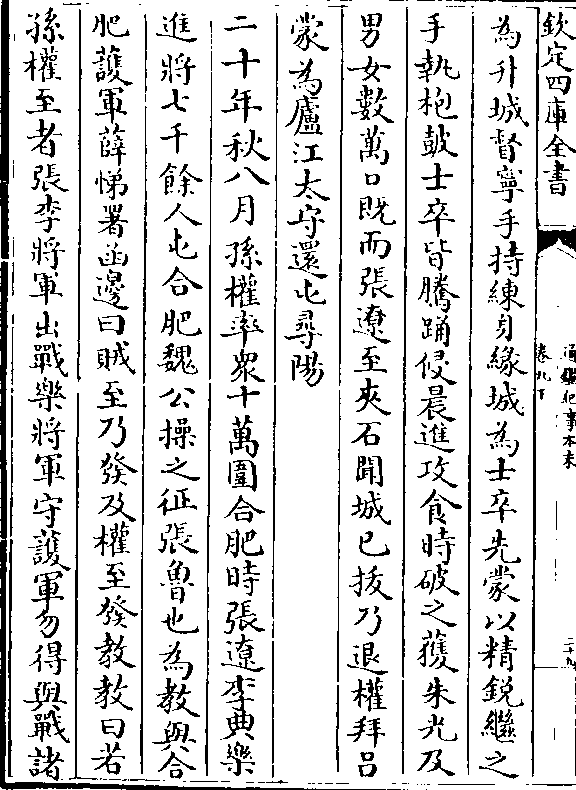 欽定四庫全書
通鑑紀事本末
卷九下
二十九
為升城督寧手持練身緣城為士卒先蒙以精銳繼之
手執枹鼓士卒皆騰踊侵晨進攻食時破之獲朱光及
男女數萬口既而張遼至夾石聞城已拔乃退權拜吕
蒙為廬江太守還屯尋陽
二十年秋八月孫權率衆十萬圍合肥時張遼李典樂
進將七千餘人屯合肥魏公操之征張魯也為教與合
肥護軍薛悌署函邊曰賊至乃發及權至發教教曰若
孫權至者張李將軍出戰樂將軍守護軍勿得與戰諸